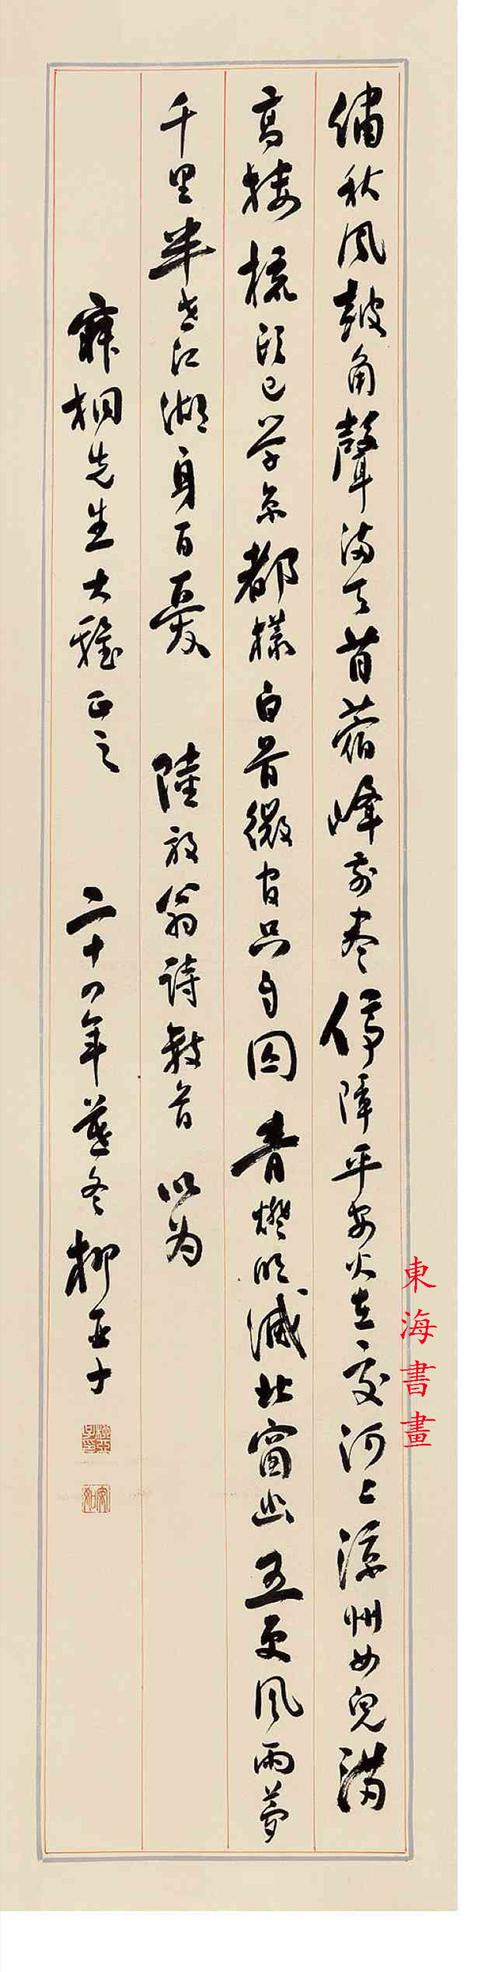 繡秋風鼓角聲滿天苜蓿峰前盡停障平安火在交河上涼州女兒滿
高樓梳頭已學京都樣白首微官只自囚青燈明滅北窗幽五更風雨夢
千里半世江湖身百憂 陸放翁詩數首 以為
桐先生大雅正之 二十四年暮冬 柳亞子
東海書畫